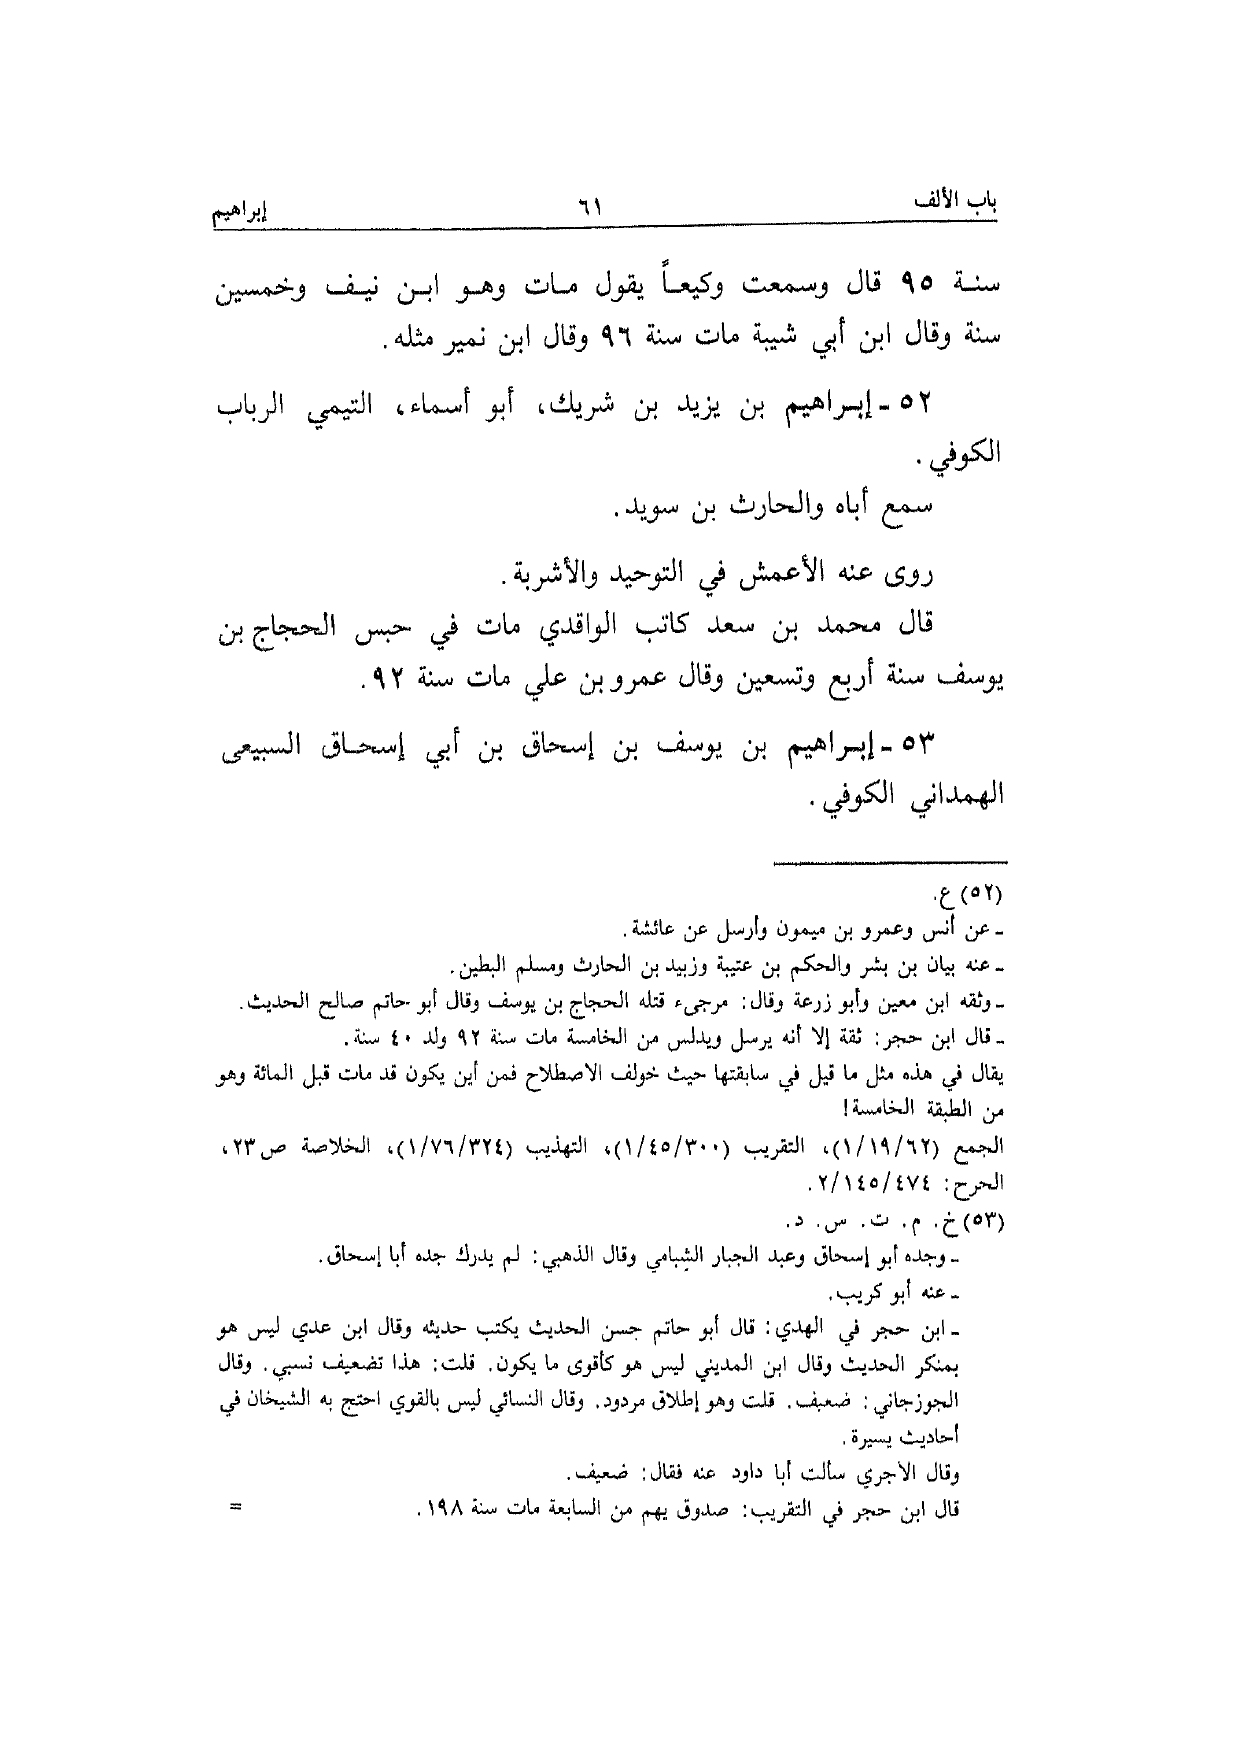 باب الألف ٦١ إبراهيم
سنة ٩٥ قال وسمعت وكيعاً يقول مات وهو ابن نيف وخمسين
سنة وقال ابن أبي شيبة مات سنة ٩٦ وقال ابن نمير مثله.
٥٢ - إبراهيم بن يزيد بن شريك، أبو أسماء، التيمي الرباب
الكوفي.
سمع أباه والحارث بن سويد.
روى عنه الأعمش في التوحيد والأشربة.
قال محمد بن سعد كاتب الواقدي مات في حبس الحجاج بن
يوسف سنة أربع وتسعين وقال عمرو بن علي مات سنة ٩٢.
٥٣ - إبراهيم بن يوسف بن إسحاق بن أبي إسحاق السبيعى
الهمداني الكوفي.
(٥٢) ع.
- عن أنس وعمرو بن ميمون وأرسل عن عائشة.
- عنه بيان بن بشر والحكم بن عتيبة وزبيد بن الحارث ومسلم البطين.
- وثقه ابن معين وأبو زرعة وقال: مرجىء قتله الحجاج بن يوسف وقال أبو حاتم صالح الحديث.
- قال ابن حجر: ثقة إلا أنه يرسل ويدلس من الخامسة مات سنة ٩٢ ولد ٤٠ سنة.
يقال في هذه مثل ما قيل في سابقتها حيث خولف الاصطلاح فمن أين يكون قد مات قبل المائة وهو
من الطبقة الخامسة!
الجمع (١/١٩/٦٢)، التقريب (١/٤٥/٣٠٠)، التهذيب (١/٧٦/٣٢٤)، الخلاصة ص٢٣،
الحرح: ٢/١٤٥/٤٧٤.
(٥٣) خ. م. ت. س. د.
- وجده أبو إسحاق وعبد الجبار الشبامي وقال الذهبي: لم يدرك جده أبا إسحاق.
- عنه أبو كريب.
- ابن حجر في الهدي: قال أبو حاتم حسن الحديث يكتب حديثه وقال ابن عدي ليس هو
بمنكر الحديث وقال ابن المديني ليس هو كأقوى ما يكون. قلت: هذا تضعيف نسبي. وقال
الجوزجاني: ضعيف. قلت وهو إطلاق مردود. وقال النسائي ليس بالقوي احتج به الشيخان في
أحاديث يسيرة.
وقال الآجري سألت أبا داود عنه فقال: ضعيف.
قال ابن حجر في التقريب: صدوق يهم من السابعة مات سنة ١٩٨. =